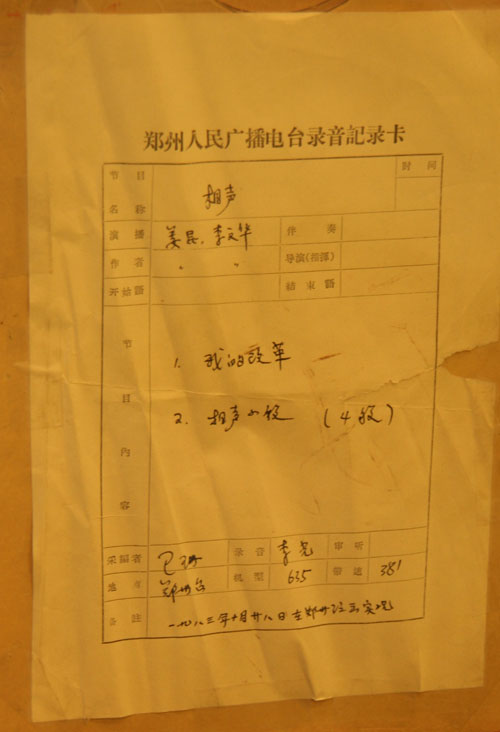 郑州人民广播电台录音記录卡
节目名称 相声 时间
演播 姜昆、李文华 伴奏
作者 〃 〃 导演(指挥)
开始語 結束語
节目內容
1. 我的改革
2. 相声小段 (4段)
采編者 录音 李光 审听
地点 郑州台 机型 635 带速 381
备註 一九八三年十月廿八日在郑州演出实况